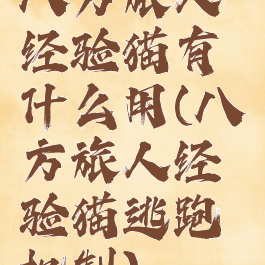 八方旅人
经验猫有
什么用(八
方旅人经
验猫逃跑
机制)